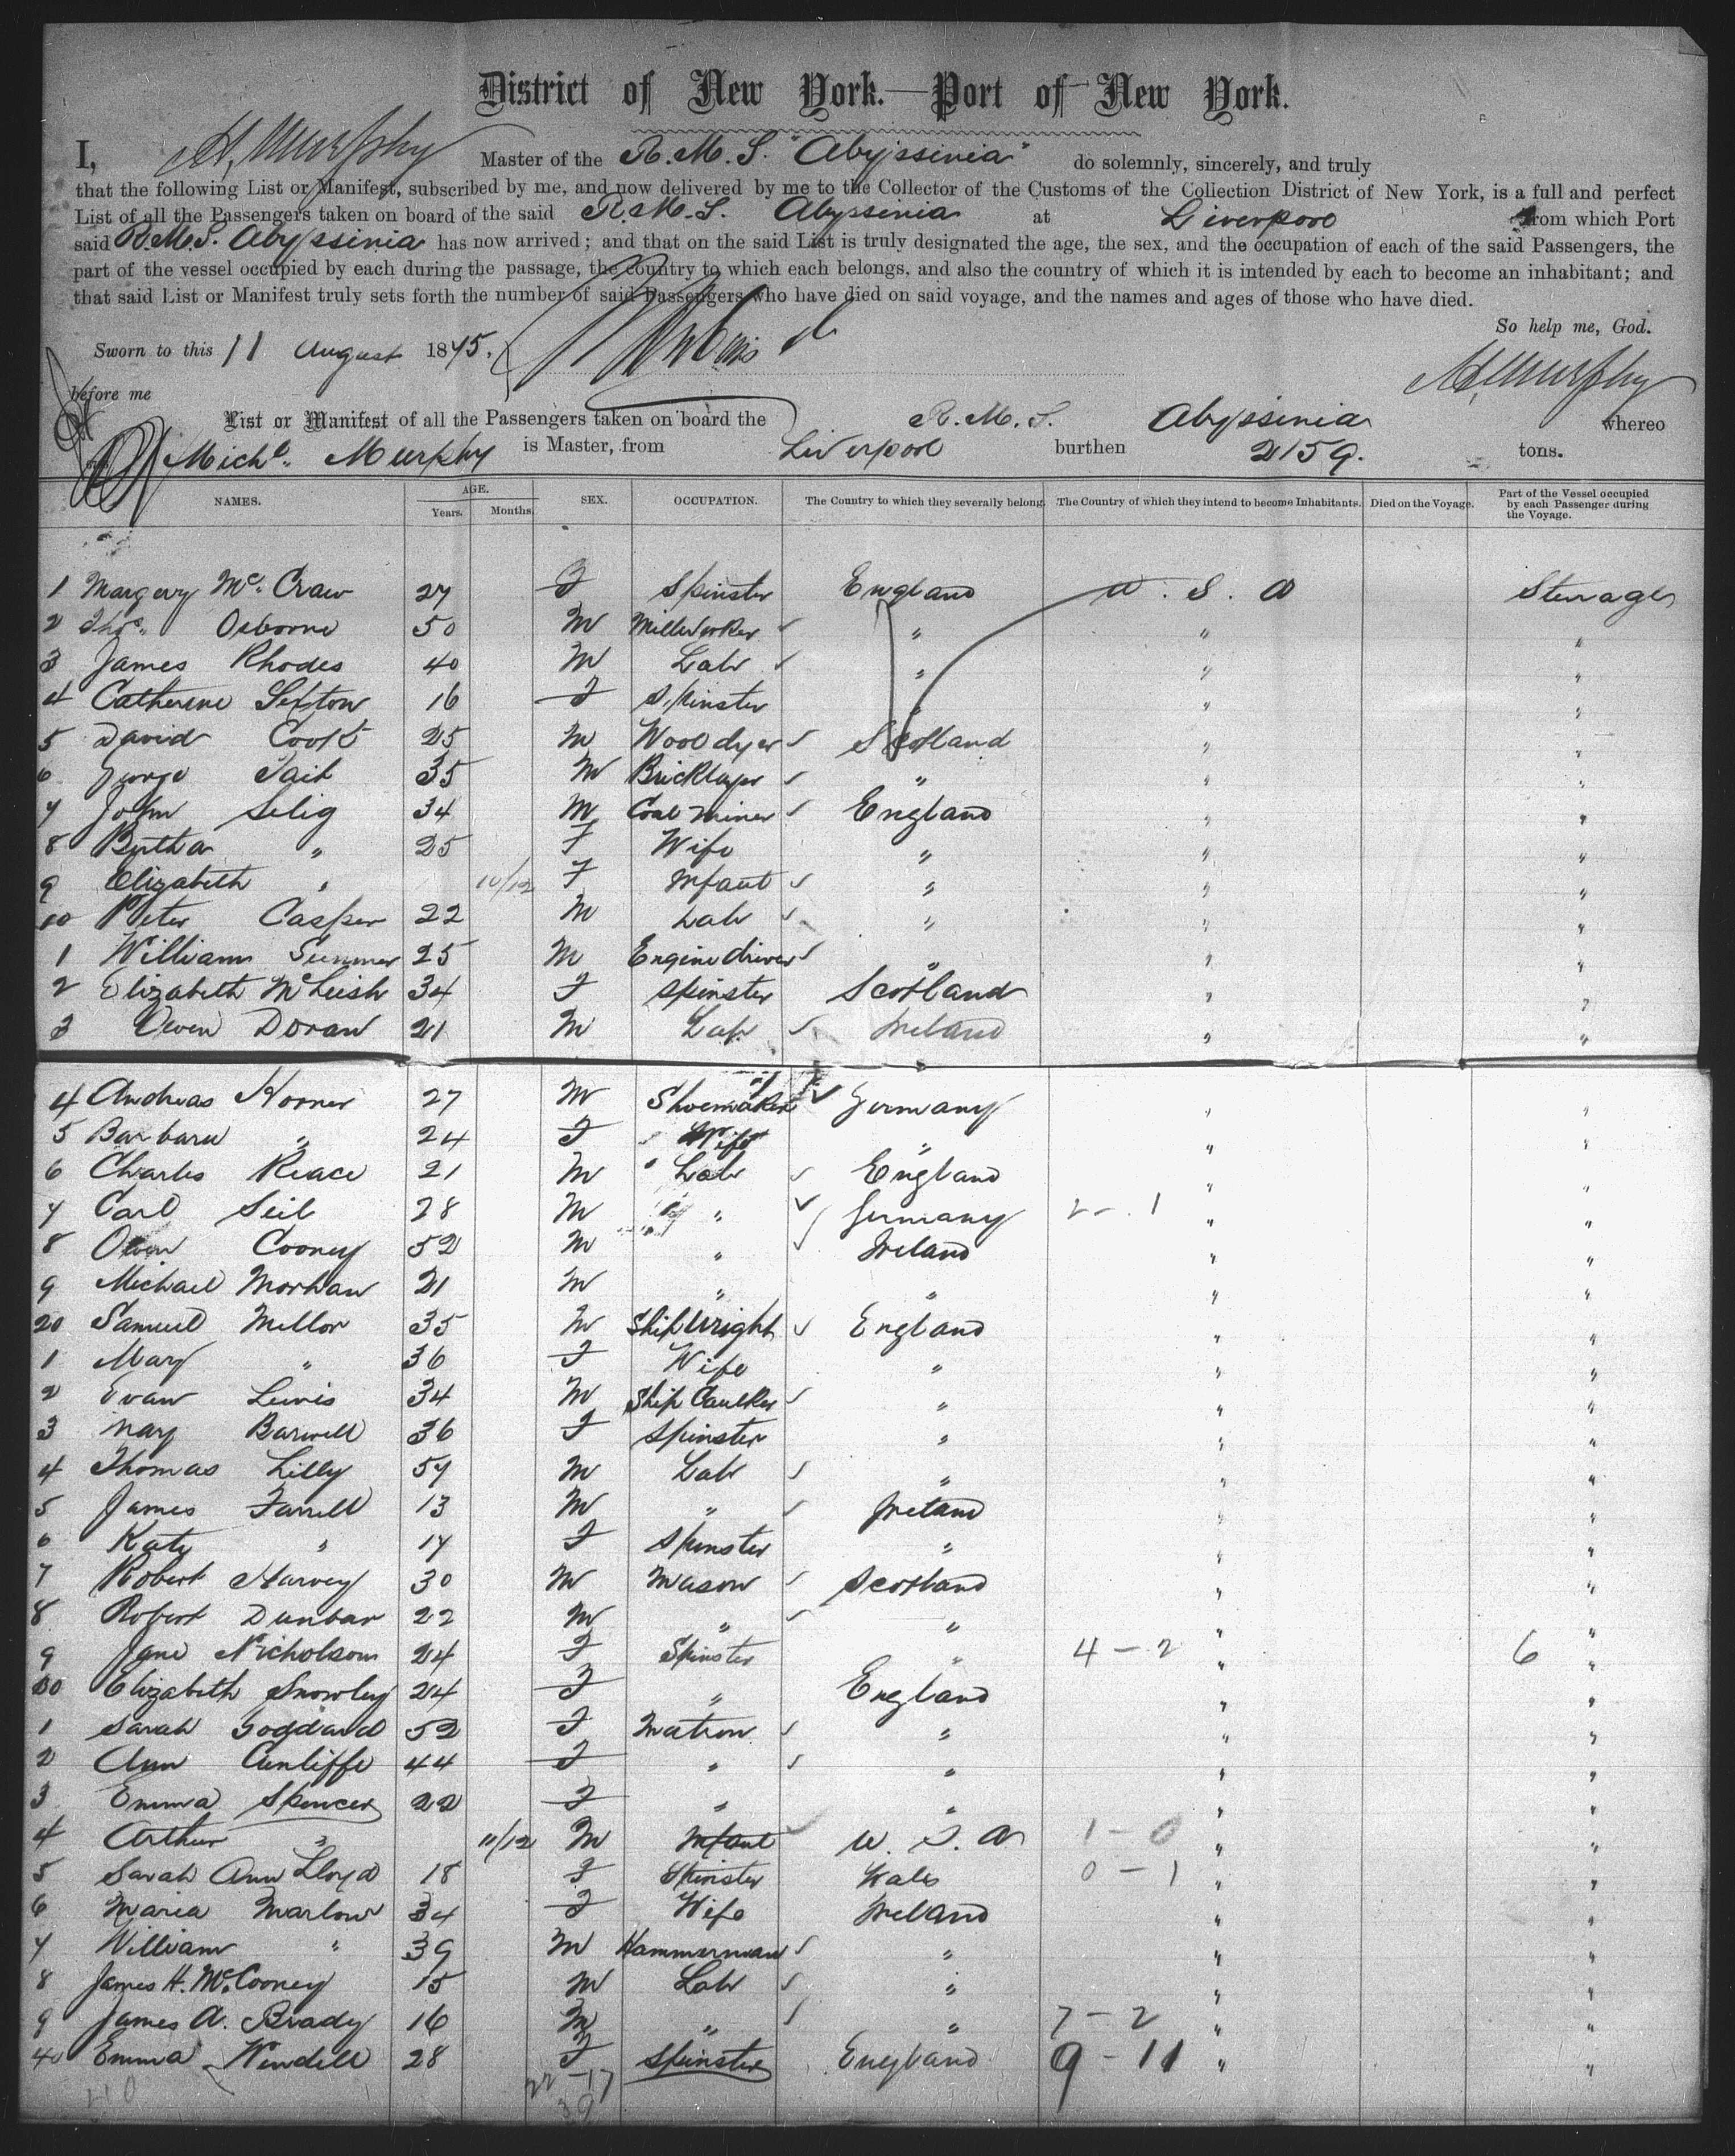 District of New York.—Port of New York.
I, M. Murphy Master of the R.M.S. "Abyssinia" do solemnly, sincerely, and truly
that the following List or Manifest, subscribed by me, and now delivered by me to the Collector of the Customs of the Collection District of New York, is a full and perfect
List of all the Passengers taken on board of the said R.M.S. Abyssinia at Liverpool from which Port
said R.M.S. Abyssinia has now arrived; and that on the said List is truly designated the age, the sex, and the occupation of each of the said Passengers, the
part of the vessel occupied by each during the passage, the country to which each belongs, and also the country of which it is intended by each to become an inhabitant; and
that said List or Manifest truly sets forth the number of said Passengers who have died on said voyage, and the names and ages of those who have died.
So help me, God.
Sworn to this 11 August 1875.
M. Murphy
before me
List or Manifest of all the Passengers taken on board the R.M.S. Abyssinia whereo
Michl. Murphy is Master, from Liverpool burthen 2159. tons.
NAMES. AGE. SEX. OCCUPATION. The Country to which they severally belong. The Country of which they intend to become Inhabitants. Died on the Voyage. Part of the Vessel occupied by each Passenger during the Voyage.
Years. Months.
1 Margery Mc. Craw 27 F Spinster England U.S.A Steerage
2 Thos. Osborne 50 M Millworker " " "
3 James Rhodes 40 M Labr " " "
4 Catherine Sefton 16 F Spinster " " "
5 David Cook 25 M Wool dyer Scotland " "
6 George Tait 35 M Bricklayer " " "
7 John Selig 34 M Coal Miner England " "
8 Bertha " 25 F Wife " " "
9 Elizabeth " 10/12 F Infant " " "
10 Peter Casper 22 M Labr " " "
1 William Sumner 25 M Engine driver " " "
2 Elizabeth McLeish 34 F Spinster Scotland " "
3 Owen Doran 21 M Labr. Ireland " "
4 Andreas Horner 27 M Shoemaker Germany " "
5 Barbara " 24 F Wife " " "
6 Charles Peace 21 M Labr England " "
7 Carl Seib 28 M " Germany 2-1 " "
8 Owen Cooney 52 M " Ireland " "
9 Michael Morhan 21 M " " " "
20 Samuel Mellor 35 M Ship Wright England " "
1 Mary " 36 F Wife " " "
2 Evan Lewis 34 M Ship Caulker " " "
3 Mary Barwell 36 F Spinster " " "
4 Thomas Lilly 57 M Labr " " "
5 James Farrell 13 M " Ireland " "
6 Kate " 17 F Spinster " " "
7 Robert Harvey 30 M Mason Scotland " "
8 Robert Dunbar 22 M " " " "
9 Jane Nicholson 24 F Spinster " 4-2 " 6 "
30 Elizabeth Snowley 24 F " England " "
1 Sarah Goddard 52 F Matron " " "
2 Ann Cunliffe 44 F " " " "
3 Emma Spencer 22 F " " " "
4 Arthur " 11/12 M Infant U.S.A 1-0 " "
5 Sarah Ann Lloyd 18 F Spinster Wales 0-1 " "
6 Maria Marlow 34 F Wife Ireland " "
7 William " 39 M Hammerman " " "
8 James H. McCooney 15 M Labr " " "
9 James A. Brady 16 M " " 7-2 " "
40 Emma Wendell 28 F Spinster England 9-11 " "
22-17
39